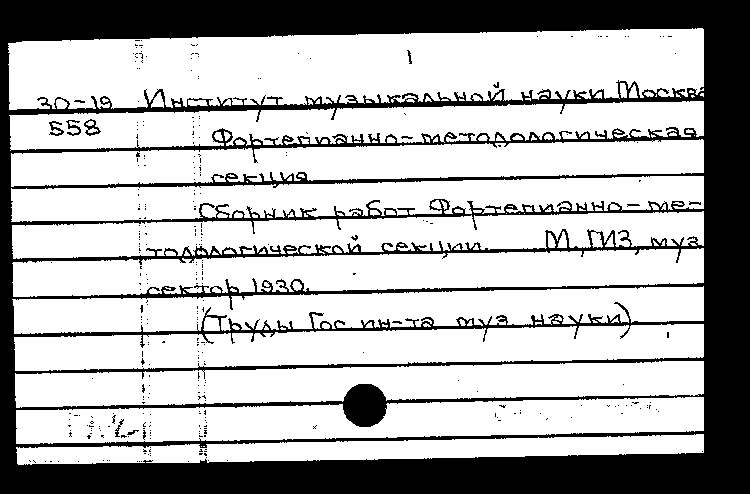 1
30-19 Институт музыкальной науки Москва
558 Фортепианно-методологическая
секция
Сборник работ Фортепианно-ме-
тодологической секции. М., ГИЗ, муз
сектор, 1930.
(Труды Гос ин-та муз. науки)